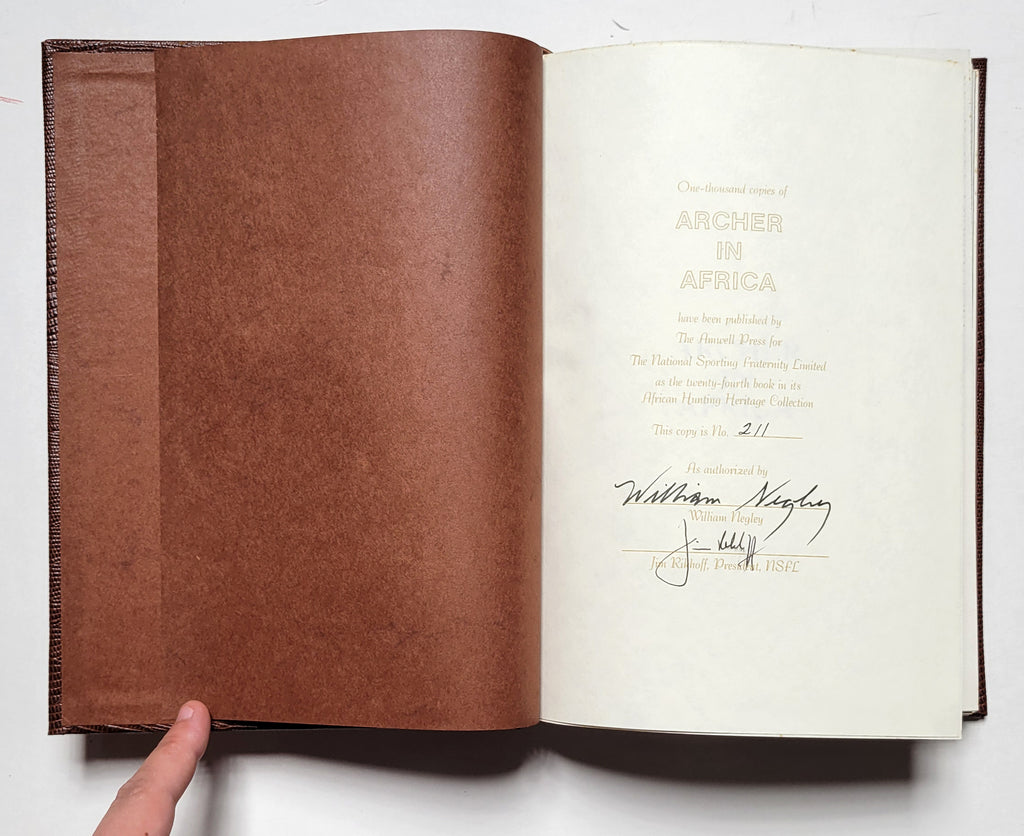 One-thousand copies of
ARCHER
IN
AFRICA
have been published by
The Amwell Press for
The National Sporting Fraternity Limited
as the twenty-fourth book in its
African Hunting Heritage Collection
This copy is No. 211
As authorized by
William Negley
William Negley
Jim Rikhoff
Jim Rikhoff, President, NSFL